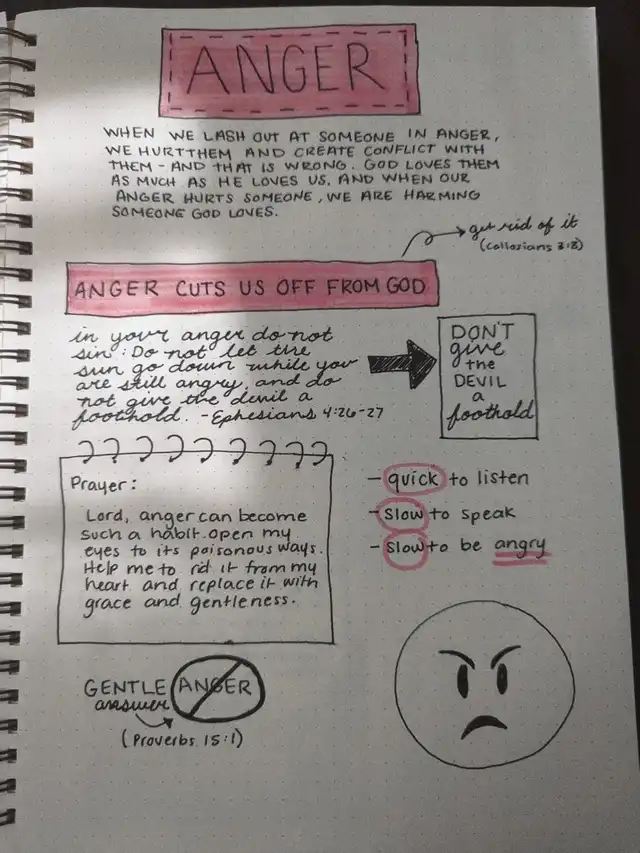 ANGER
WHEN WE LASH OUT AT SOMEONE IN ANGER,
WE HURT THEM AND CREATE CONFLICT WITH
THEM - AND THAT IS WRONG. GOD LOVES THEM
AS MUCH AS HE LOVES US. AND WHEN OUR
ANGER HURTS SOMEONE, WE ARE HARMING
SOMEONE GOD LOVES.
get rid of it
(Collosians 3:8)
ANGER CUTS US OFF FROM GOD
in your anger do not
sin: Do not let the
sun go down while you
are still angry, and do
not give the devil a
foothold. -Ephesians 4:26-27
DON'T
give
the
DEVIL
a
foothold
Prayer:
Lord, anger can become
such a habit. open my
eyes to its poisonous ways.
Help me to rid it from my
heart and replace it with
grace and gentleness.
- quick to listen
- slow to speak
- slow to be angry
GENTLE ANGER
answer
(Proverbs 15:1)